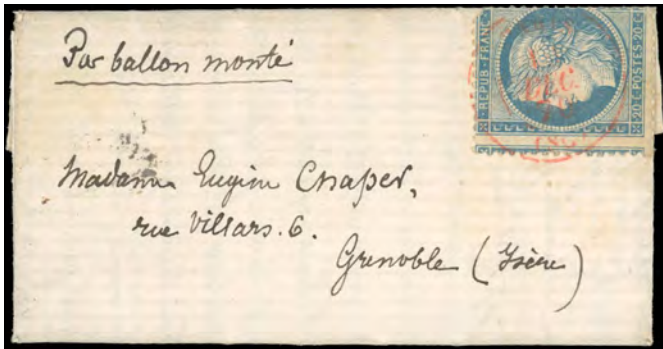 Par ballon monté
REPUB · FRANC
20·C POSTES·20·C
DEC.
(SC)
Madame Eugène Chaper,
rue Villars. 6.
Grenoble (Isère)